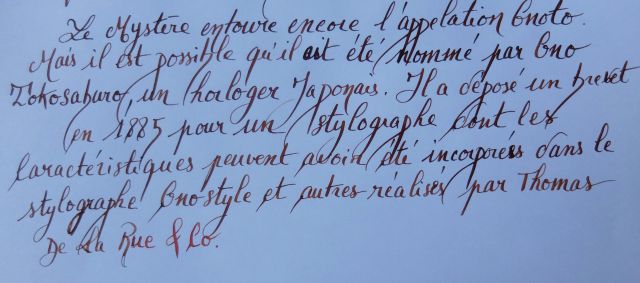 Le Mystère entoure encore l'appelation Onoto.
Mais il est possible qu'il ait été nommé par Ono
Tokosaburo, un horloger Japonais. Il a déposé un brevet
en 1885 pour un stylographe dont les
caractéristiques peuvent avoir été incorporées dans le
stylographe Onostyle et autres réalisés par Thomas
De la Rue & Co.